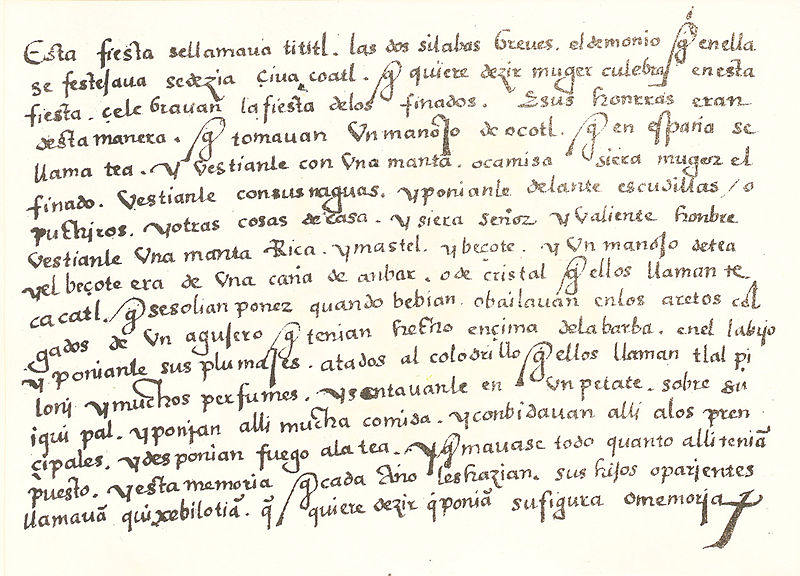 Esta fiesta sellamaua tititl. las dos silabas breues. el demonio q̃ enella
se festejaua sedezia çiua coatl. q̃ quiere dezir muger culebra, enesta
fiesta. çele brauan la fiesta delos finados. Esus honrras eran
desta manera. q̃ tomauan Vn manojo de ocotl. q̃ en españa se
llama tea. y vestianle con vna manta. o camisa si era muger el
finado. vestianle consus naguas. y ponianle delante escudillas / o
puchjros. y otras cosas de casa. y siera señor y valiente honbre
vestianle vna manta Rica. y mastel. y beçote. y vn manojo de tea
y el beçote era de vna caña de anbar. o de cristal q̃ ellos llaman te
ca catl. q̃ se solian poner quando bebian. o bailauan en los aretos col
gados de vn agujero q̃ tenian hecho ençima dela barba. enel labrjo
y poniante sus plumajes. atados al colodrillo q̃ ellos llaman tlal pi
lonj y muchos perfumes. y sentauanle en vn petate. sobre su
iqui pal. y ponjan alli mucha comida. y conbidauan alli alos pren
çipales. y des ponian fuego ala tea. y q̃ mauase todo quanto alli teniã
puesto. y esta memoria q̃ cada Año les hazian. sus hijos o parjentes
llamauã quixebilotiã. q̃ quiere dezir q̃ poniã su figura o memorja